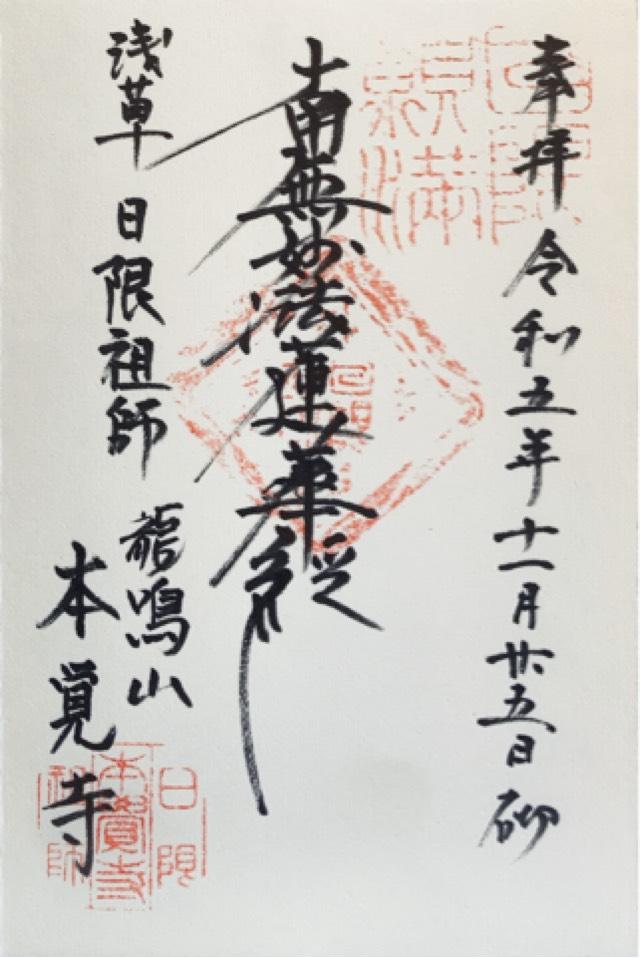 奉拝 令和五年十一月廿五日
南無妙法蓮華経
浅草 日限祖師
龍鳴山
本覚寺
日限
本覺寺
祖師